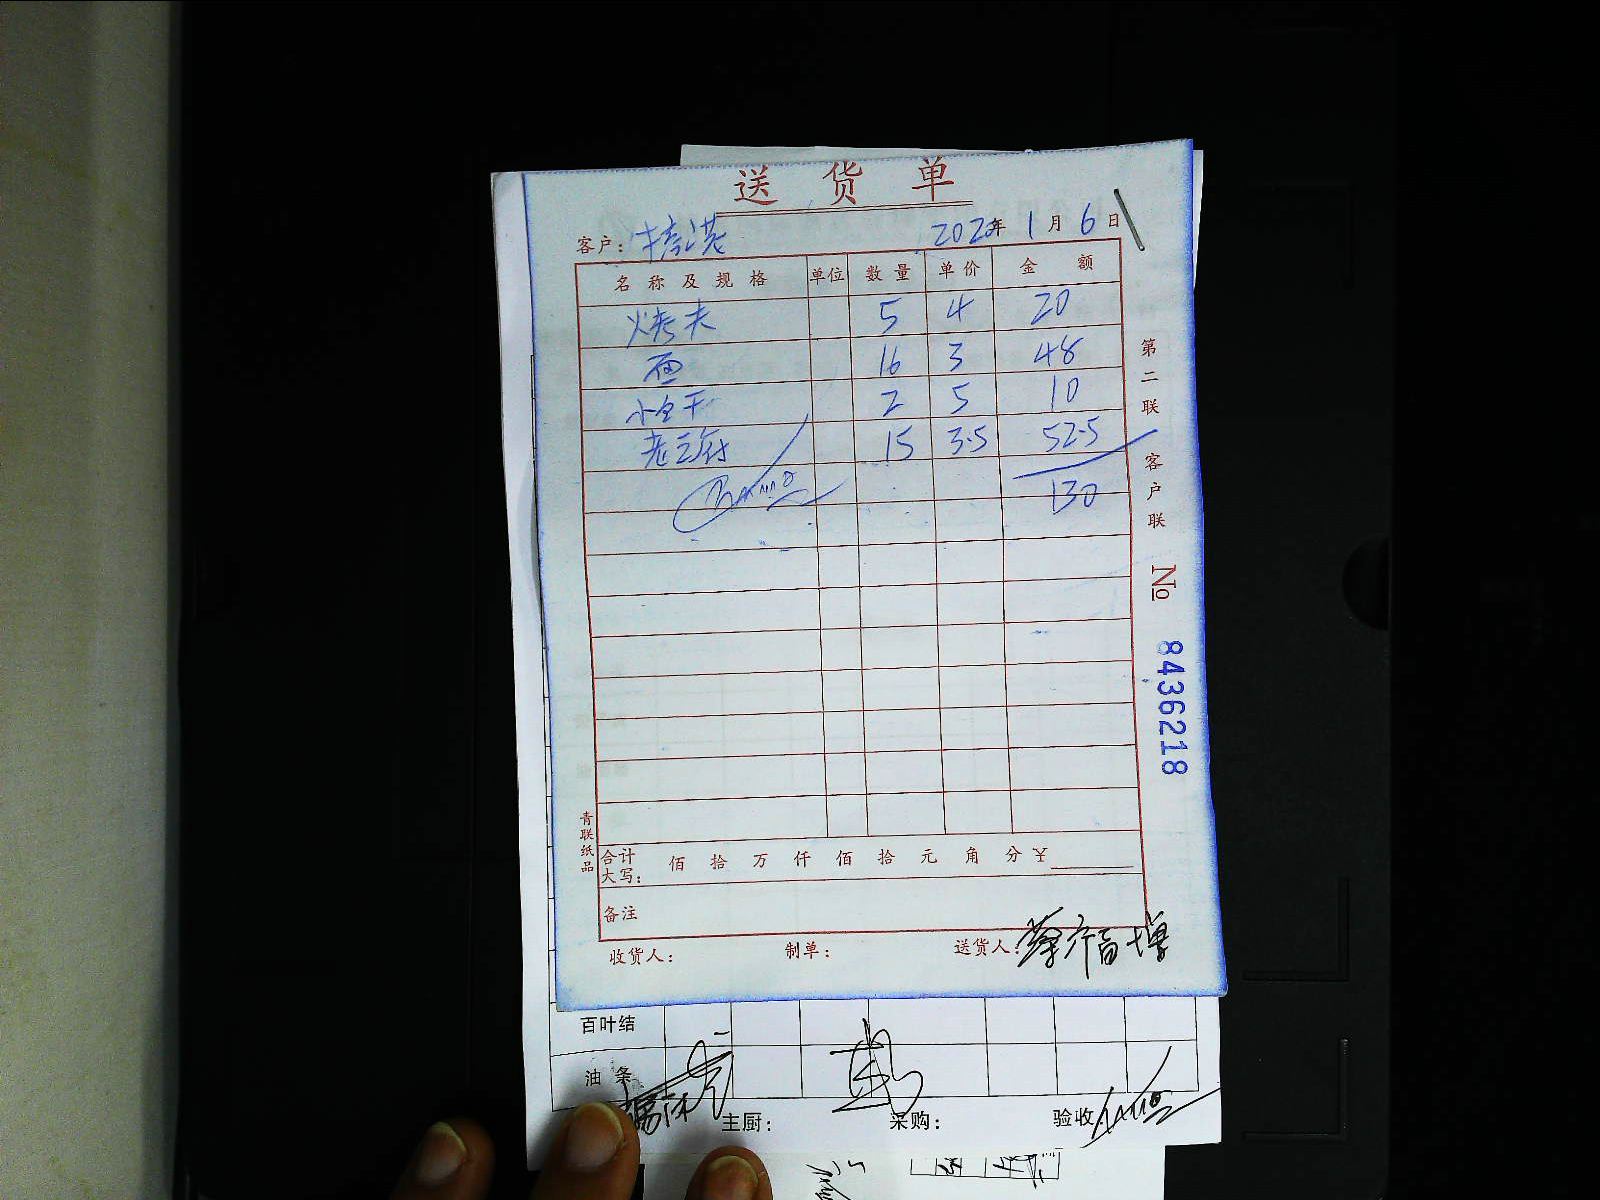 送货单
客户： 2020年1月6日
名称及规格 单位 数量 单价 金额
烤夫 5 4 20
面 16 3 48
小全干 2 5 10
老豆付 15 3.5 52.5
130
第二联 客户联
No 8436218
青联纸品
合计大写： 佰 拾 万 仟 佰 拾 元 角 分 ￥
备注
收货人： 制单： 送货人：
百叶结
油条
主厨： 采购： 验收